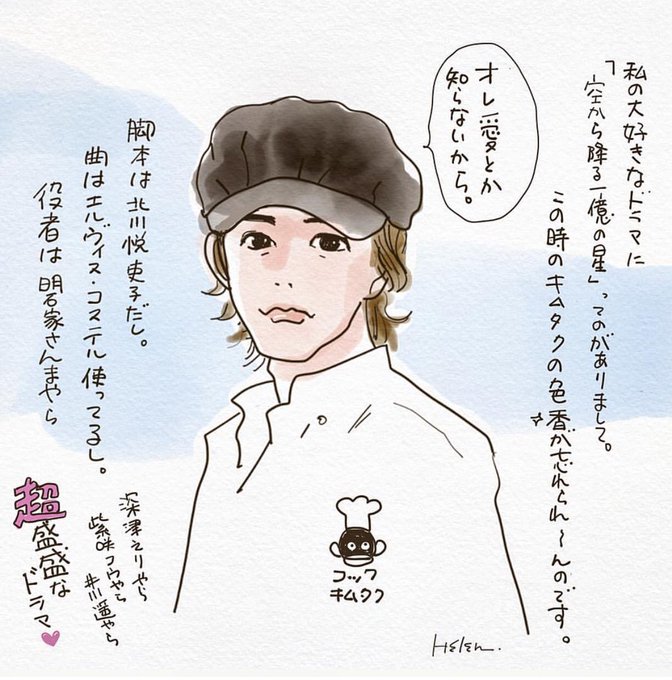 私の大好きなドラマに
「空から降る一億の星」ってのがありまして。
この時のキムタクの色香が忘れられ〜んのです。
オレ愛とか
知らないから。
脚本は北川悦吏子だし。
曲はエルヴィス・コステル使ってるし。
役者は明石家さんまやら
深津えりやら
柴咲コウやら
井川遥やら
超盛盛な
ドラマ
コック
キムタク
HELEN.